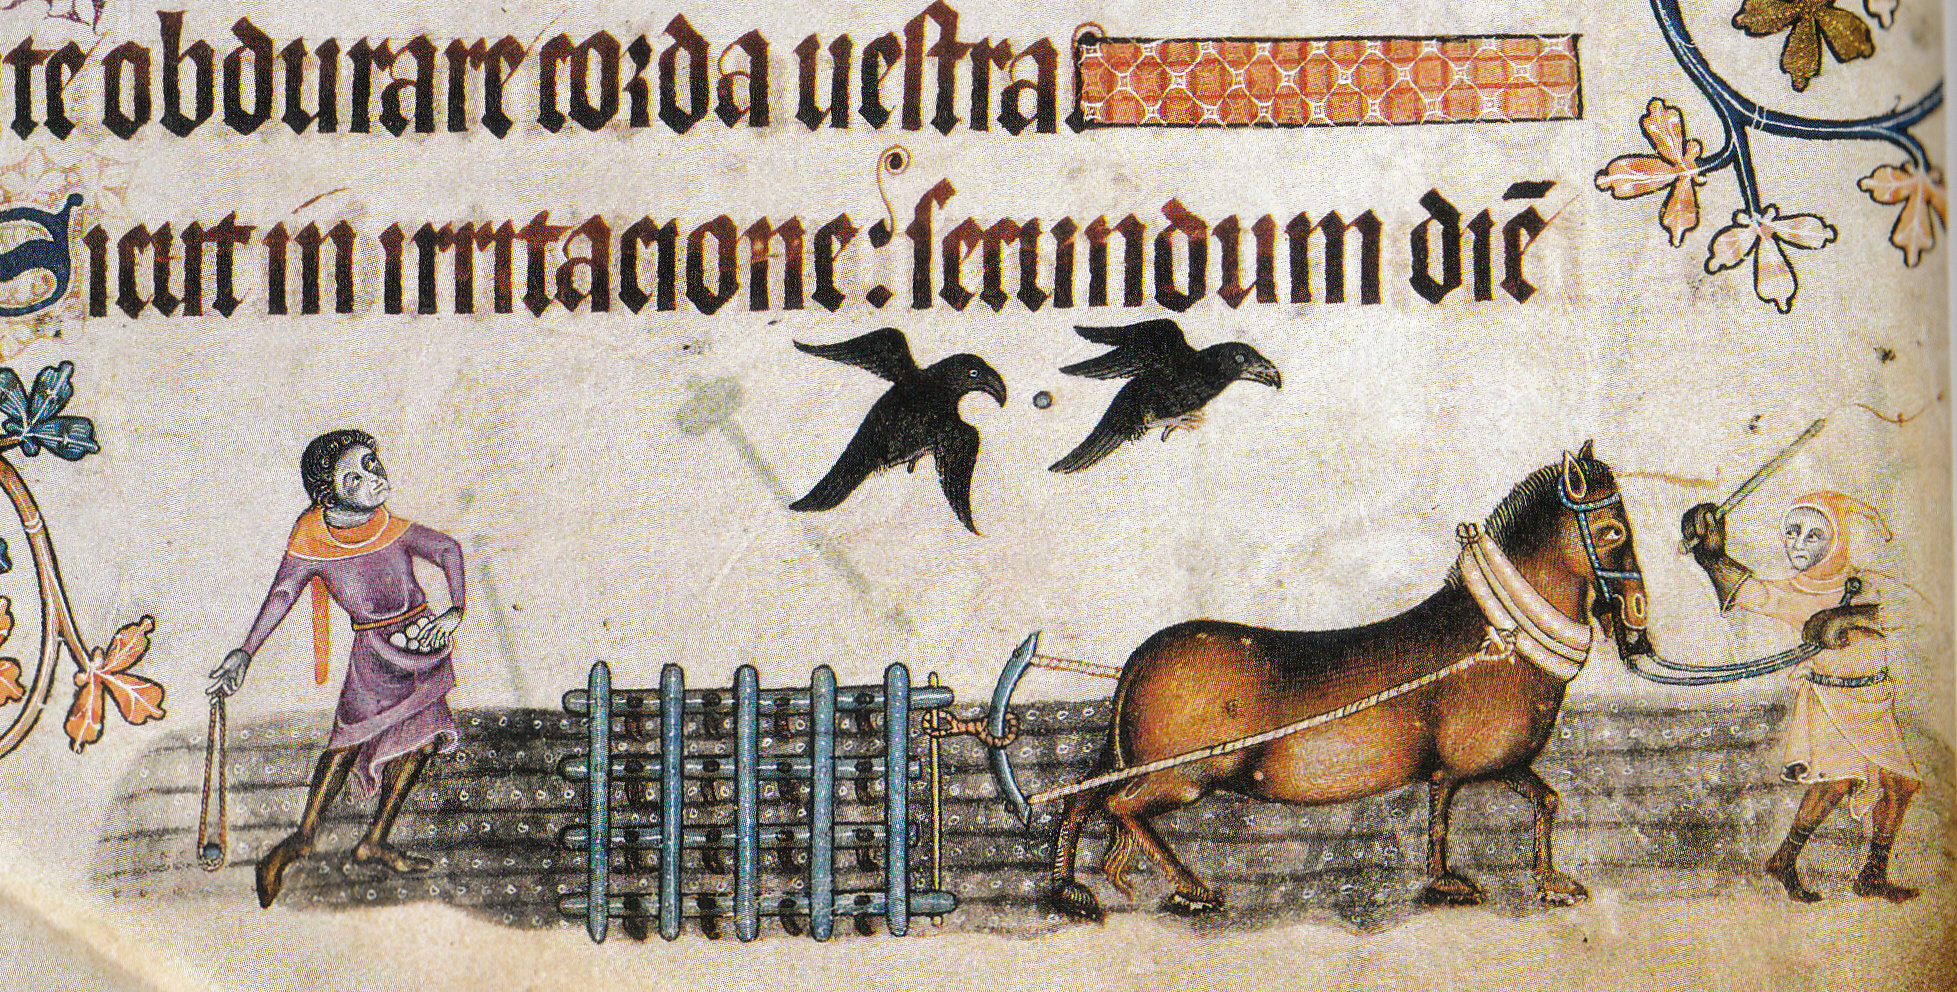 te obdurare corda uestra
Sicut in irritacione: secundum diē